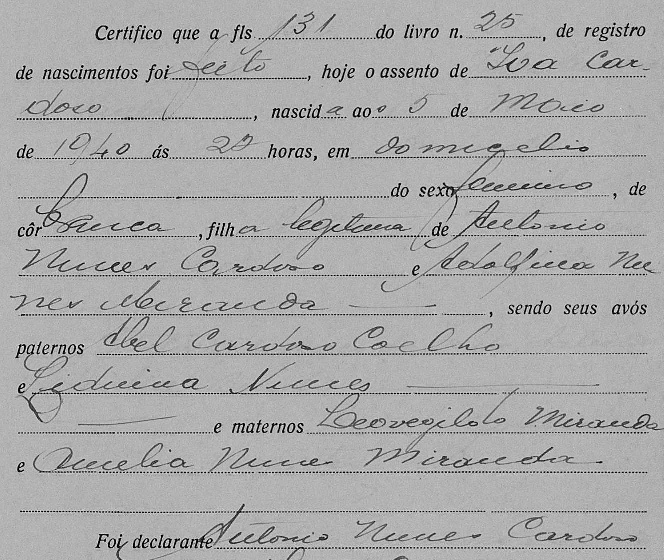 Certifico que a fls 131 do livro n. 25, de registro
de nascimentos foi feito, hoje o assento de Iva Car-
doso, nascida aos 5 de Maio
de 1940 ás 22 horas, em domicelio
do sexo feminino, de
côr branca, filha legitima de Antonio
Nunes Cardoso e Adolfina Nu
nes Miranda — —, sendo seus avós
paternos Abel Cardoso Coelho
e Liduina Nunes — —
— e maternos Leovegildo Miranda
e Amelia Nunes Miranda
Foi declarante Antonio Nunes Cardoso